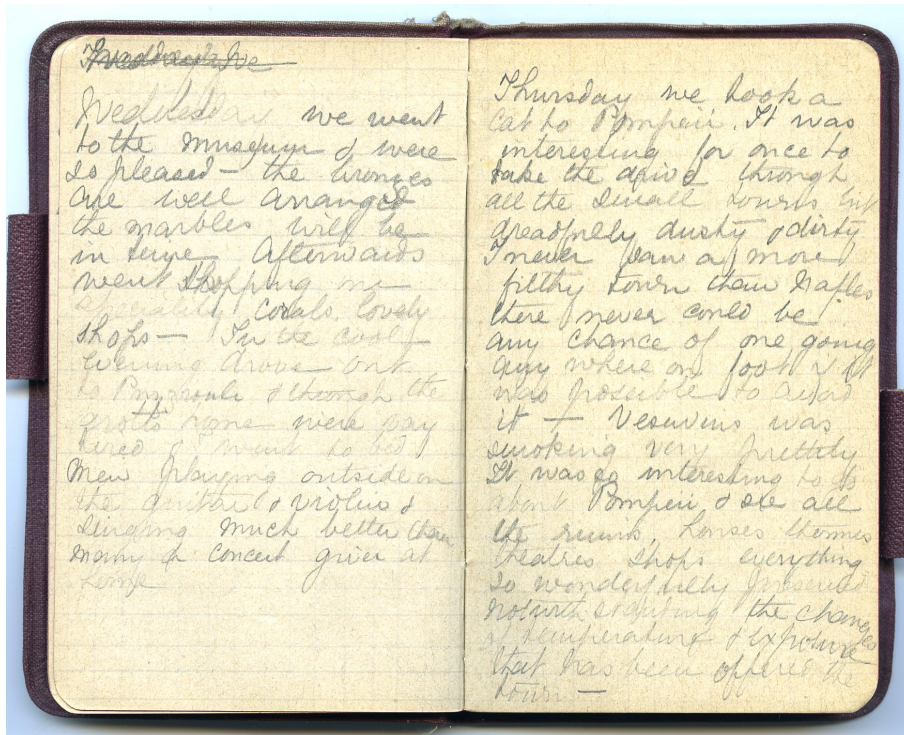 Wednesday we went
to the museum & were
so pleased - the bronzes
are well arranged
the marbles will be
in time Afterwards
went shopping
speciality corals, lovely
shops - In the cool
evening drove out
to & through the
grotto were
tired & went to bed
men playing outside on
the guitar & violins &
singing much better than
many a concert giver at
home
Thursday we took a
cab to Pompeii. It was
interesting for once to
take the drive through
all the small towns but
dreadfully dusty & dirty
I never saw a more
filthy town than Naples
there never could be
any chance of one going
any where on foot if it
was possible to avoid
it - Vesuvius was
smoking very prettily
It was so interesting to go
about Pompeii & see all
the ruins, houses thermes
theatres shops everything
so wonderfully preserved
notwithstanding the changes
of temperature & exposure
that has been offered the
town -